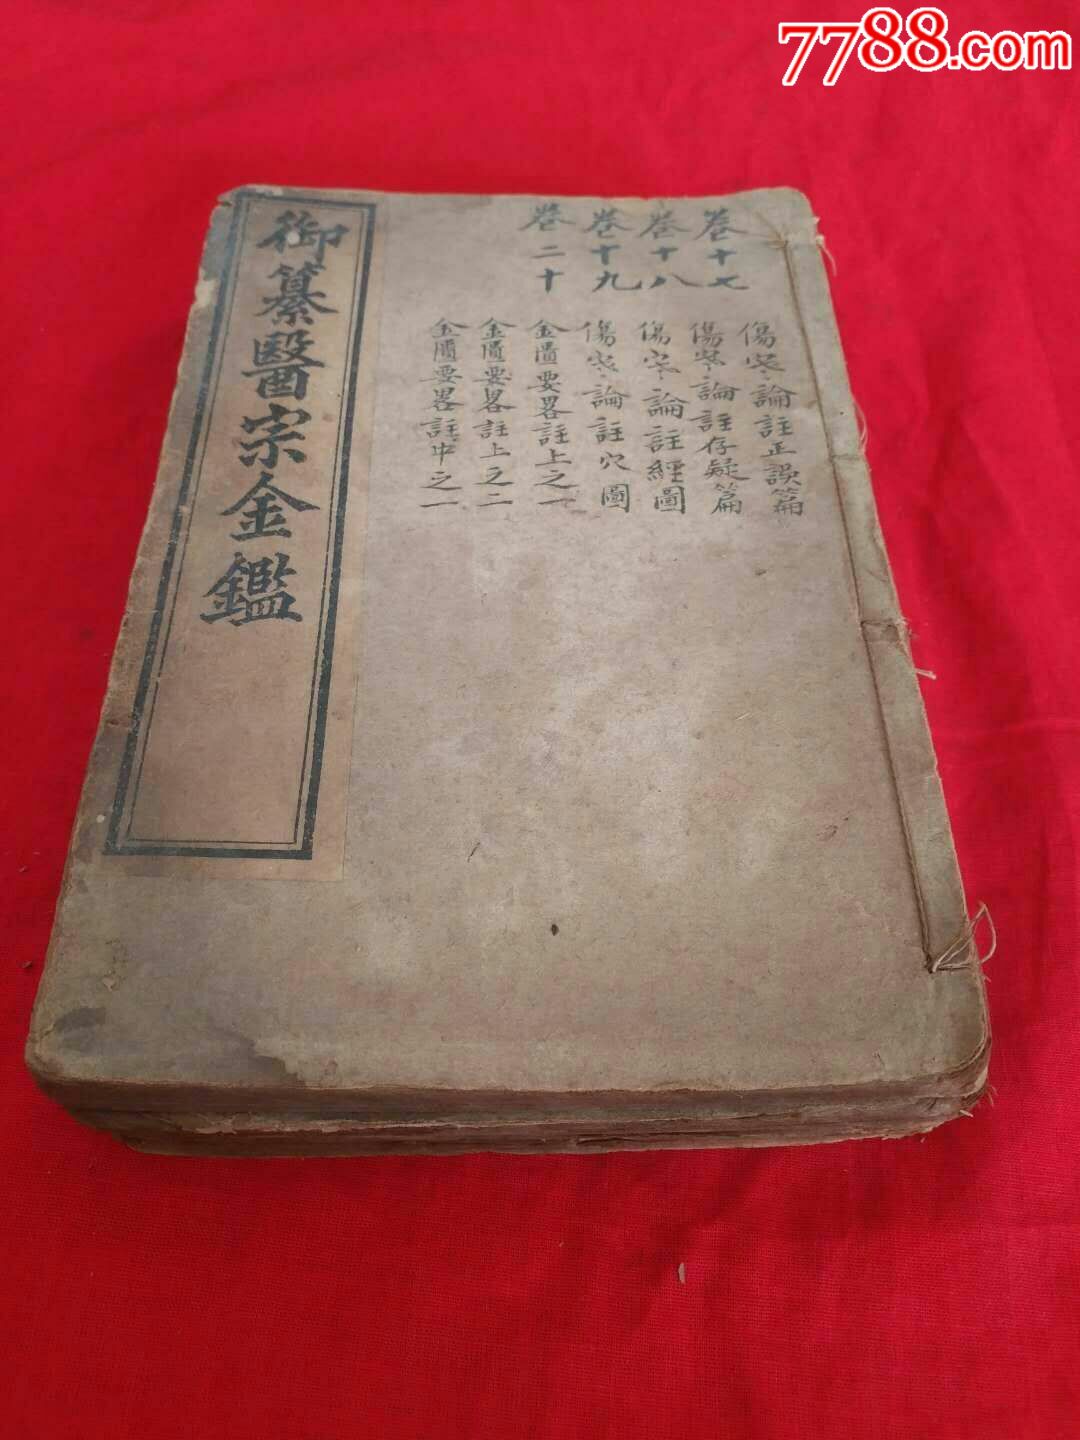 7788.com
卷十七
卷十八
卷十九
卷二十
傷寒論註正誤篇
傷寒論註存疑篇
傷寒論註經圖
傷寒論註穴圖
金匱要畧註上之一
金匱要畧註上之二
金匱要畧註中之一
御纂醫宗金鑑